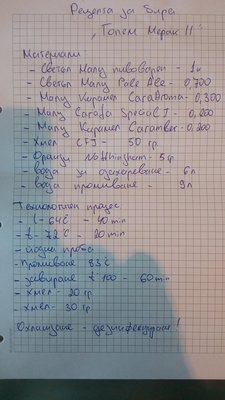 Рецепта за бира
„Голем Мерак II"
Материали
- Светъл Малц пивоварен - 1кг
- Светъл Малц Pale Ale - 0,700
- Малц Карамел CaraAroma - 0,300
- Малц Carafa Special I - 0,200
- Малц Карамел Caramber - 0.200
- Хмел 50 гр
- Nottingham - 5 гр
- вода за - 6л
- вода промиване - 9л
Технологичен процес
- t - 64℃ - 40 min
- t - 72℃ - 20 min
- йодна проба
- Промиване 83℃
- завиране t 100 - 60 min
- хмел - 20 гр
- хмел - 30 гр.
Охлаждане - !